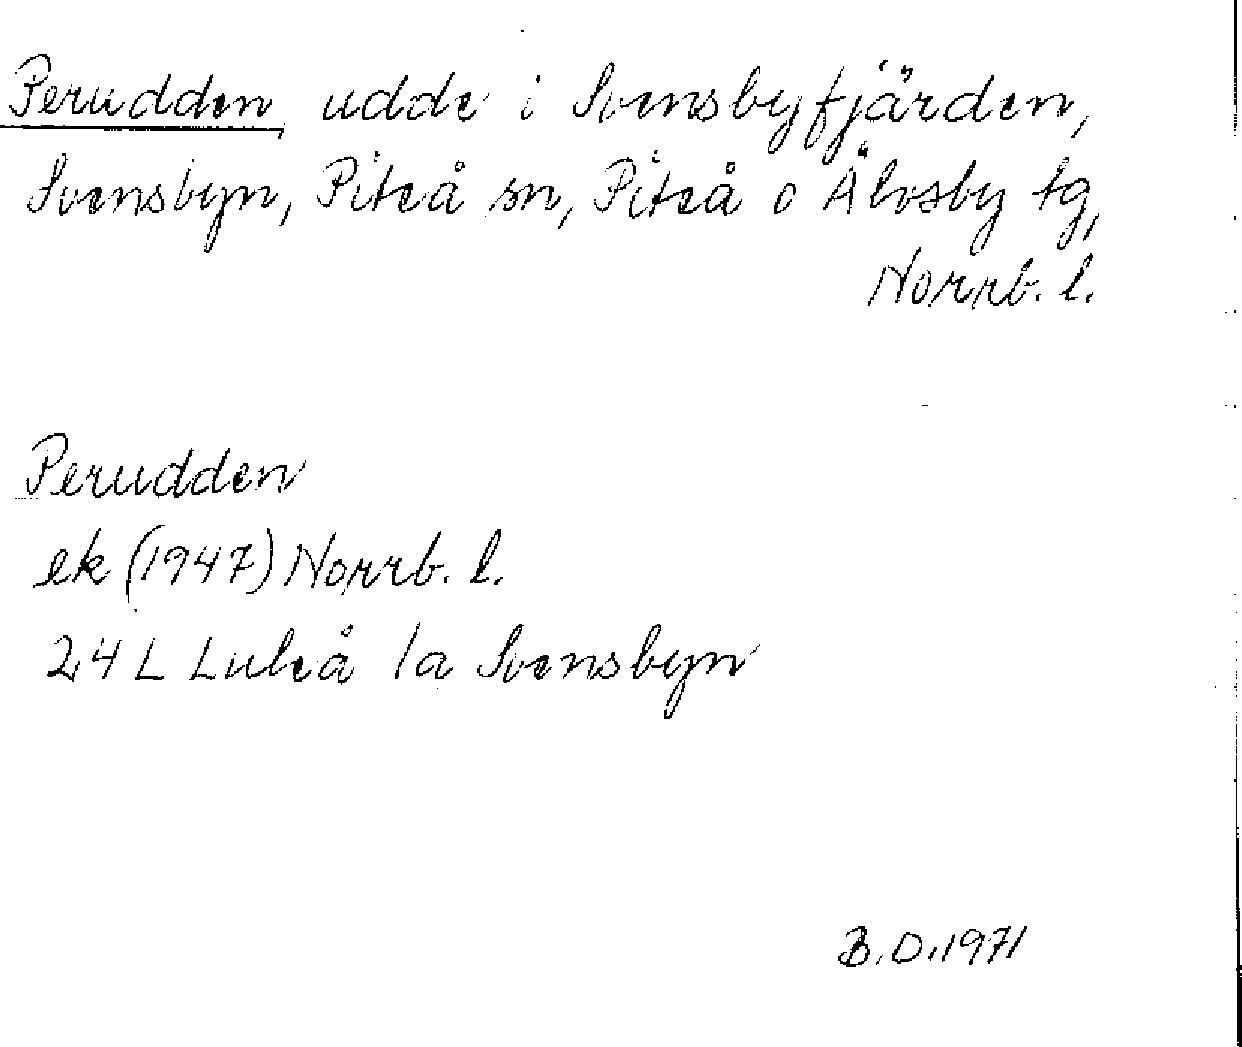 Perudden, udde i Svensbyfjärden,
Svensbyn, Piteå sn, Piteå o Älvsby tg,
Norrb. l.
Perudden
ek (1947) Norrb. l.
24 L Luleå 1a Svensbyn
B.D.1971